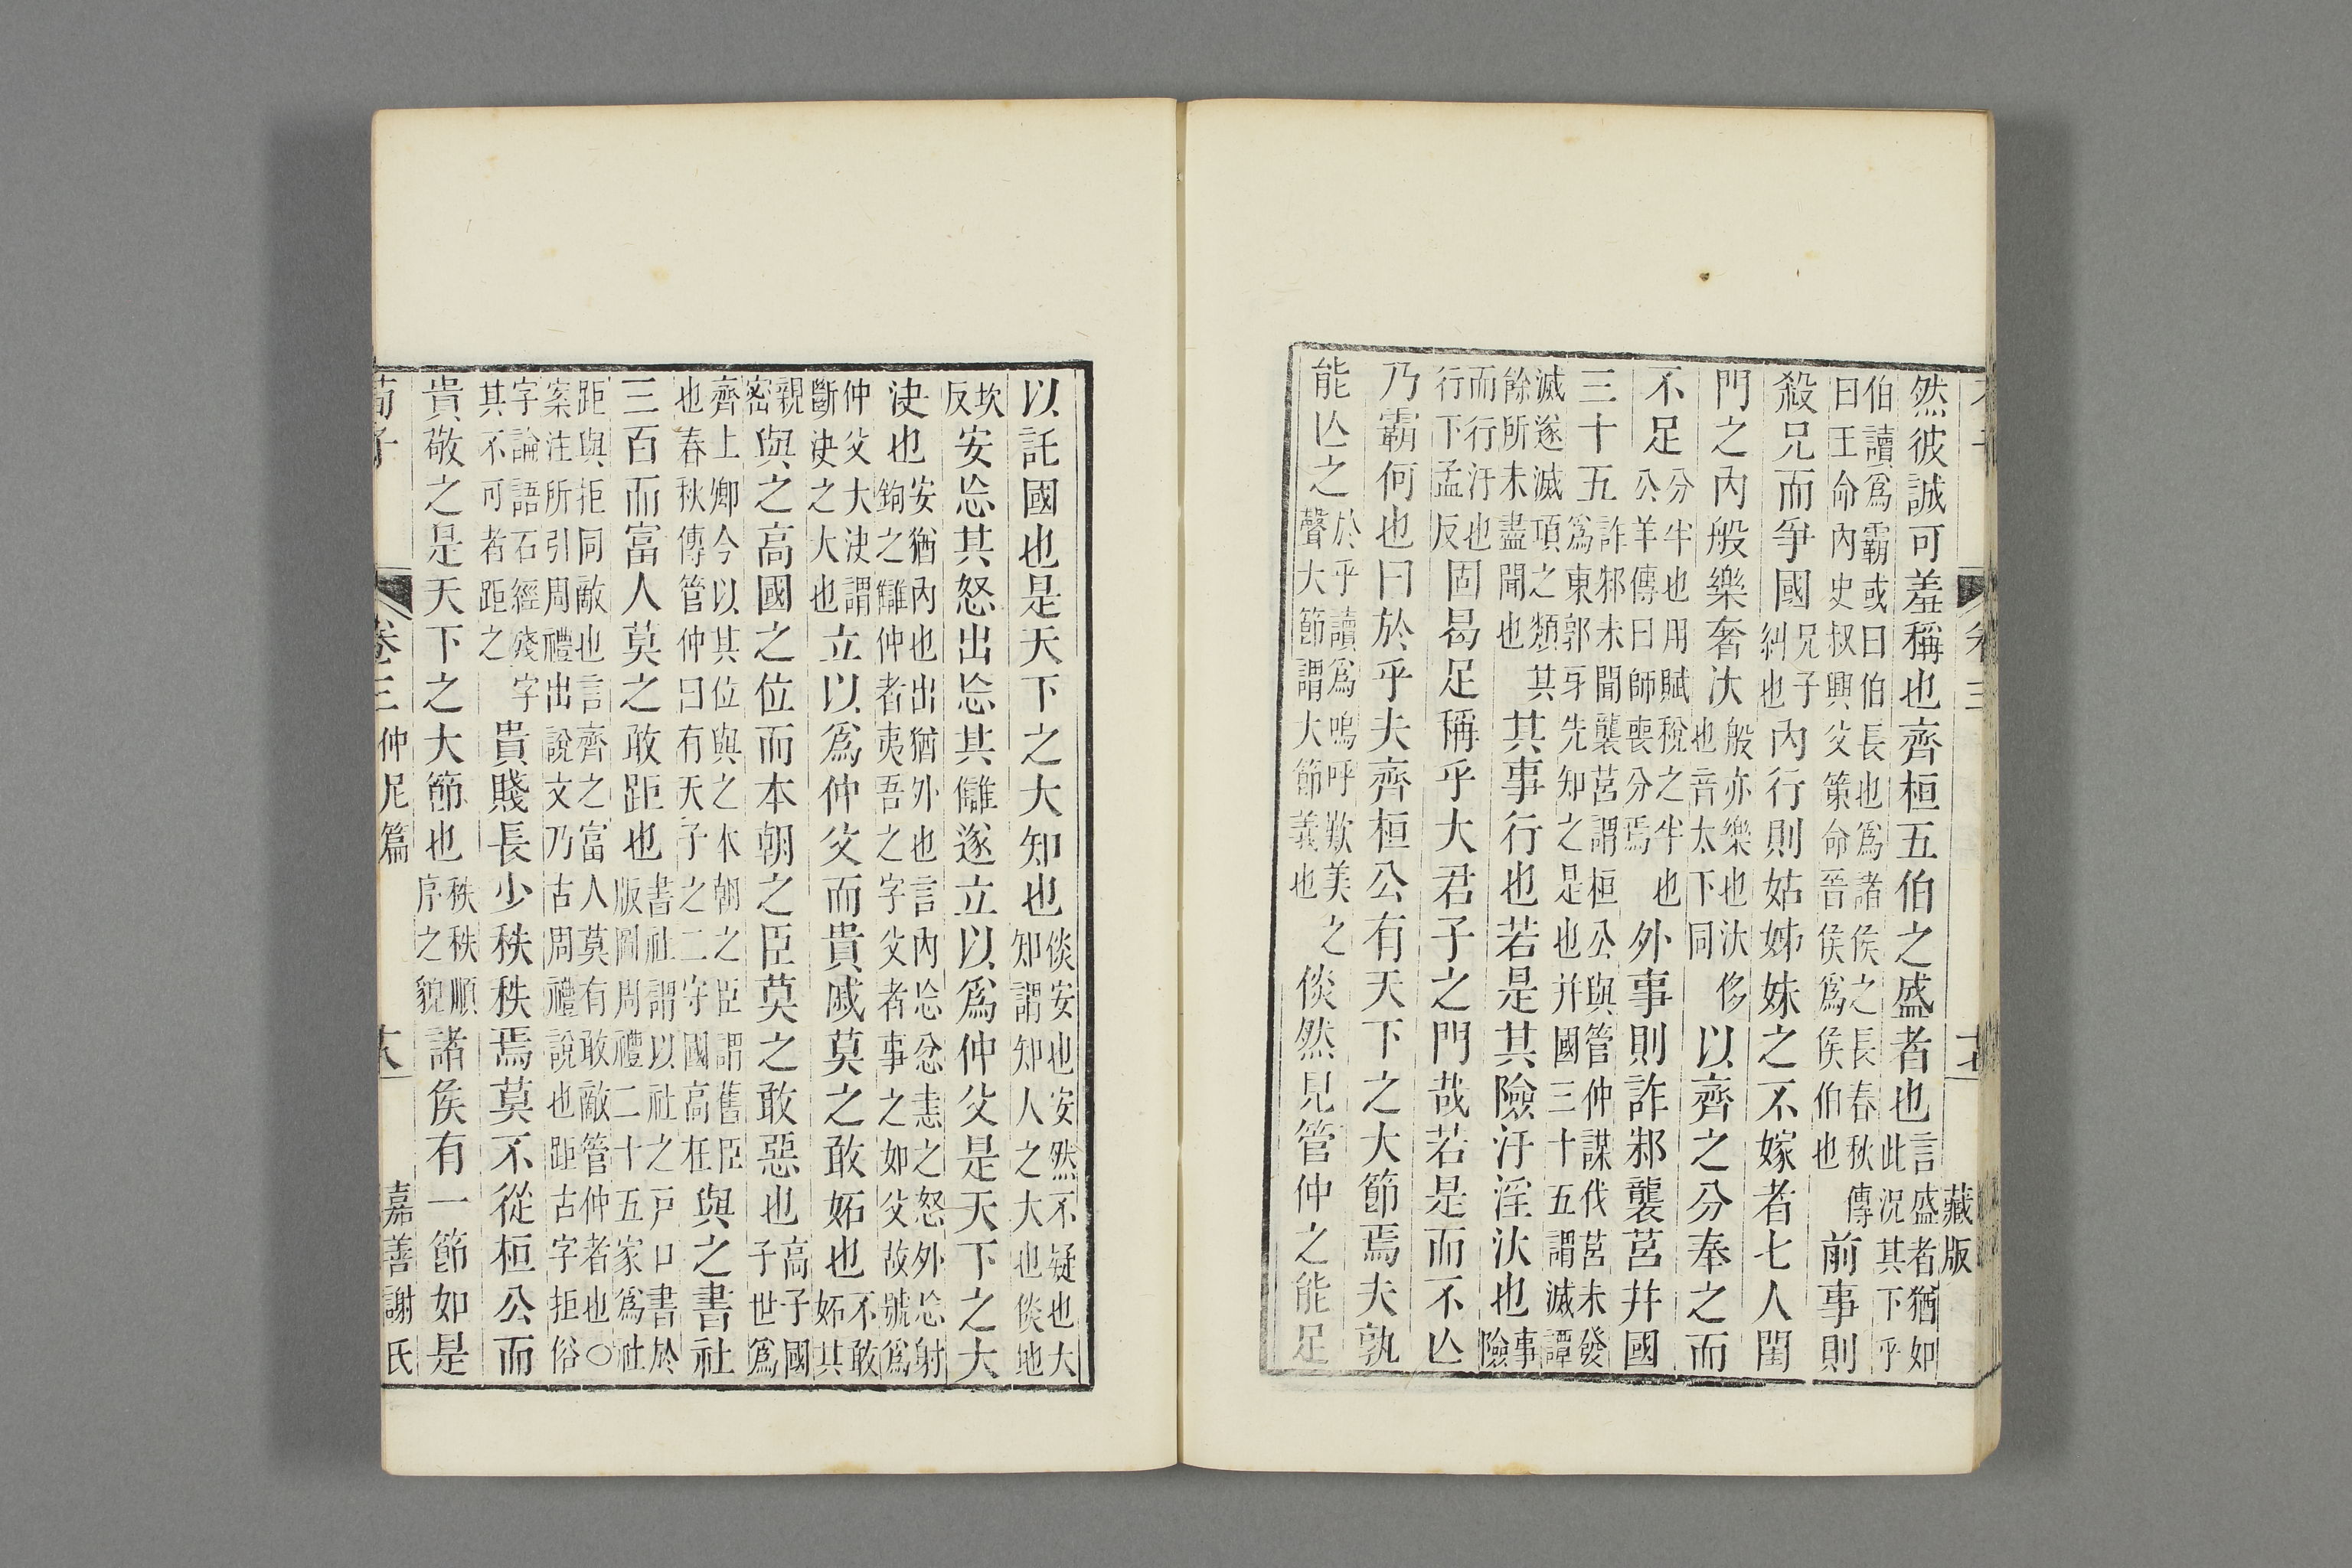 藏版
然彼誠可羞稱也齊桓五伯之盛者也言盛者猶如此況其下乎
伯讀爲霸或曰伯長也爲諸侯之長春秋傳曰王命內史叔興父策命晉侯爲侯伯也前事則
殺兄而爭國兄子糾也內行則姑姊妹之不嫁者七人閨
門之內般樂奢汏般亦樂也汏侈也音太下同以齊之分奉之而
不足分半也用賦稅之半也公羊傳曰師喪分焉外事則詐邾襲莒并國
三十五詐邾未聞襲莒謂桓公與管仲謀伐莒未發爲東郭牙先知之是也并國三十五謂滅譚
滅遂滅項之類其餘所未盡聞也其事行也若是其險汙淫汏也事險
而行汙也行下孟反固曷足稱乎大君子之門哉若是而不亾
乃霸何也曰於乎夫齊桓公有天下之大節焉夫孰
能亾之於乎讀爲嗚呼歎美之聲大節謂大節義也倓然見管仲之能足
以託國也是天下之大知也倓安也安然不疑也大知謂知人之大也倓地
坎反安忘其怒出忘其讎遂立以爲仲父是天下之大
決也安猶內也出猶外也言內忘忿恚之怒外忘射鉤之讎仲者夷吾之字父者事之如父故號爲
仲父大決謂斷決之大也立以爲仲父而貴戚莫之敢妬也不敢妬其
親密與之高國之位而本朝之臣莫之敢惡也高子國子世爲
齊上卿今以其位與之本朝之臣謂舊臣也春秋傳管仲曰有天子之二守國高在與之書社
三百而富人莫之敢距也書社謂以社之戶口書於版圖周禮二十五家爲社
距與拒同敵也言齊之富人莫有敢敵管仲者也○案注所引周禮出說文乃古周禮說也距古字拒俗
字論語石經殘字其不可者距之貴賤長少秩秩焉莫不從桓公而
貴敬之是天下之大節也秩秩順序之貌諸侯有一節如是
荀子 卷三仲尼篇 十八 嘉善謝氏